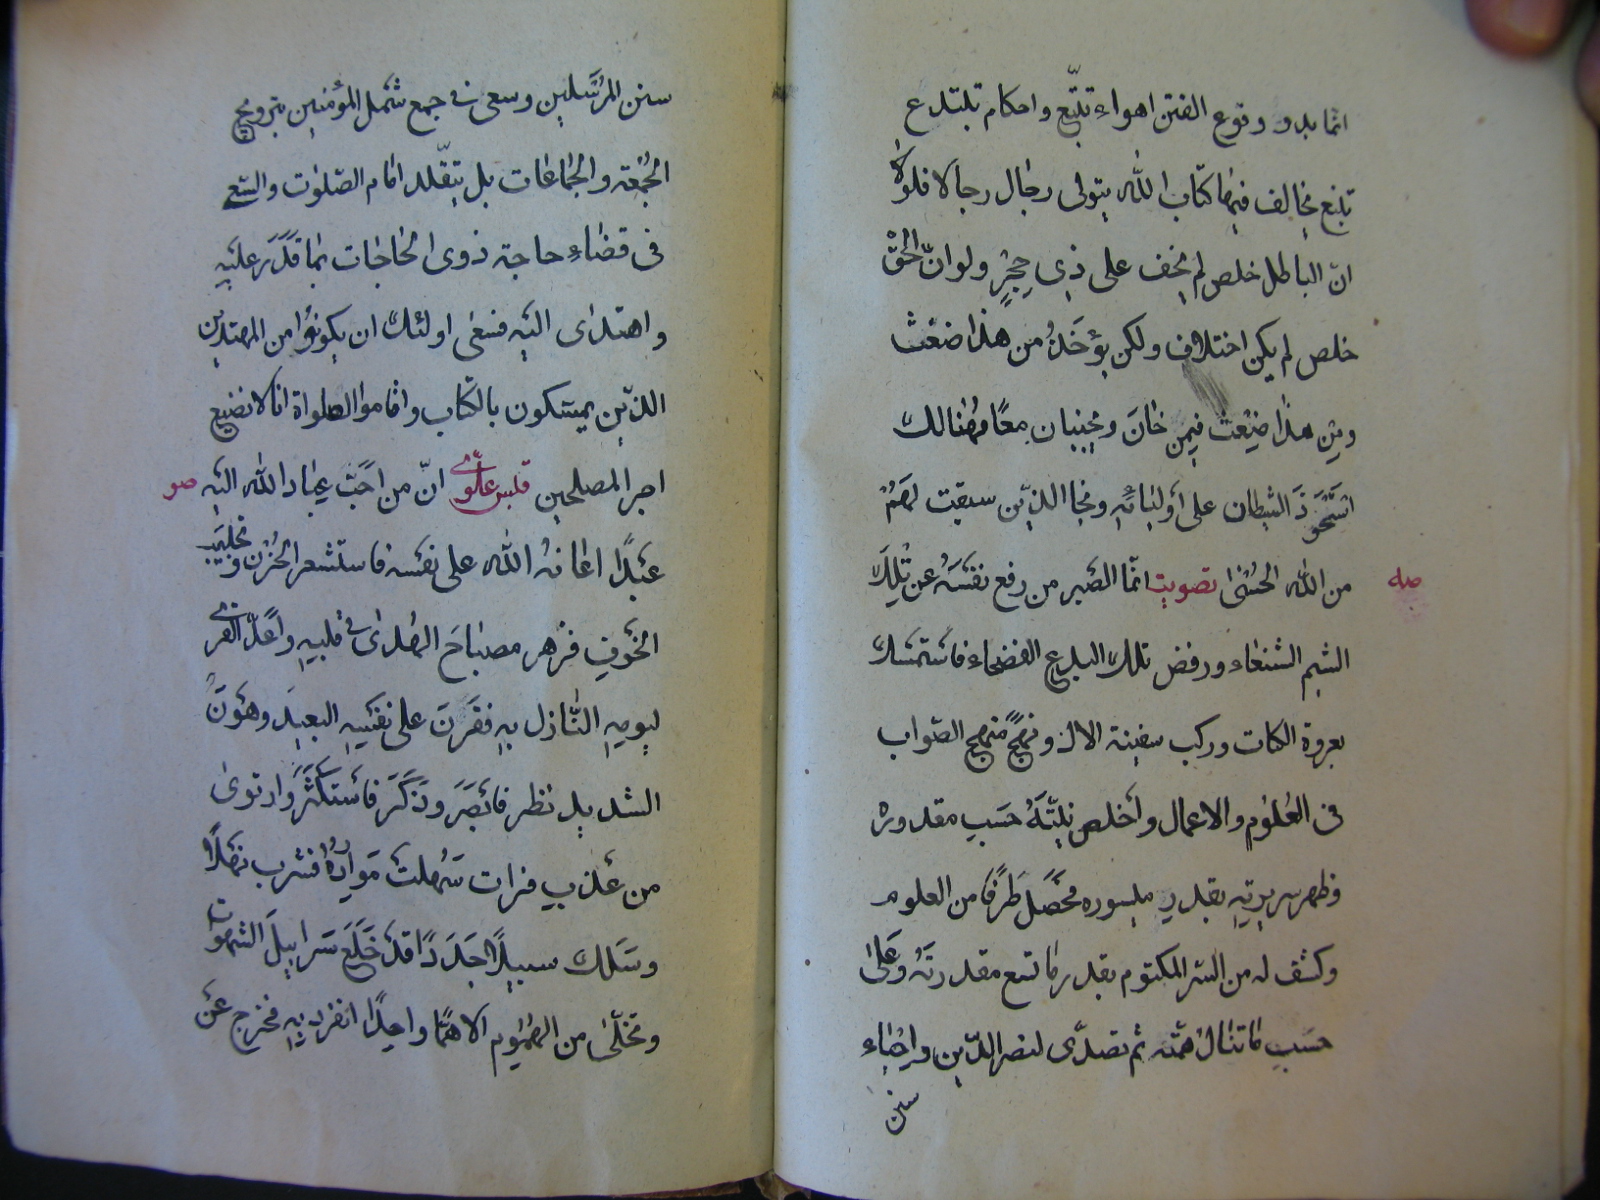 انما بدو وقوع الفتن اهواء تتّبع واحكام تبتدع
تبدع يخالف فيها كتاب الله يتولى رجال رجالا فلولا
انّ الباطل خلص لم يخف على ذى حِجرٍ ولو انّ الحقّ
خلص لم يكن اختلاف ولكن يؤخَذُ من هذا ضغث
ومِن هذا ضِغث فيمزجان ويجيئان معًا فهُنالك
اسْتَحْوَذَ الشيطان على أوليائهِ ونجا الذين سبقت لهَمُ
من الله الحُسْنىٰ تصويت انّما الصّبر من رفع نفسَهُ عن تلك
صله
الشيم الشنعاء ورفض تلك البدع الفضحاء فاستمسك
بعروة الكتاب وركب سفينة الال ونهجَ منهج الصّواب
فى العُلوُم والاعمال وأخلص نيّتَهُ حَسَبِ مقدوره
وظهر سريرتِهِ بقدرِ ميسوره فحَصَّلَ طَرفًا من العلوم
وكشف له من السّر المكتوم بقدر ما تسع مقدرتَهُ وعَلىٰ
حسَبِ ما تنالُ همّته ثم تصدّى لنصر الدّين وإحياء
سنن
سنن المرُسَلين وسعى فى جمع شمل المؤمنين بترويج
الجُمعَة والجماعات بل بتقلّد امام الصّلوٰت والسّعى
فى قضاءِ حاجة ذوى الحاجات بما قَدَّرَ عليَهِ
واهتدى اليَه فنعسى اولئك ان يكونوُا من المهتدين
الذّين يمسّكون بالكتاب واقاموا الصلواة انا لا نضيع
اجر المصلحين قلبس علّوىّ انّ من احَبّ عِباد الله اليَهِ
صو
عَبدًا اعانهُ الله على نفسَه فاستشعر الحُزن وتجلبَبَ
الخَوف فزهر مصباحَ الهُدىٰ فى قلبِهِ واَعدّ القرىٰ
ليومِهِ النّازل بِهِ فقَرّبَ على نفسِهِ البعيدَ وهَوّنَ
الشديد نظر فابصَرَ وذَكَرَ فاستكثَرَ وارتوىٰ
من عَذبٍ فرات سَهُلت مَوارِدُهُ فشرب نهَلًا
وسَلك سبيلًا جَدَدًا قد خَلَعَ سَرابيلَ الشهوٰت
وتخلّىٰ من الهُموُم الا همًّا واحِدًا انفرد بِهِ فخرج عَن